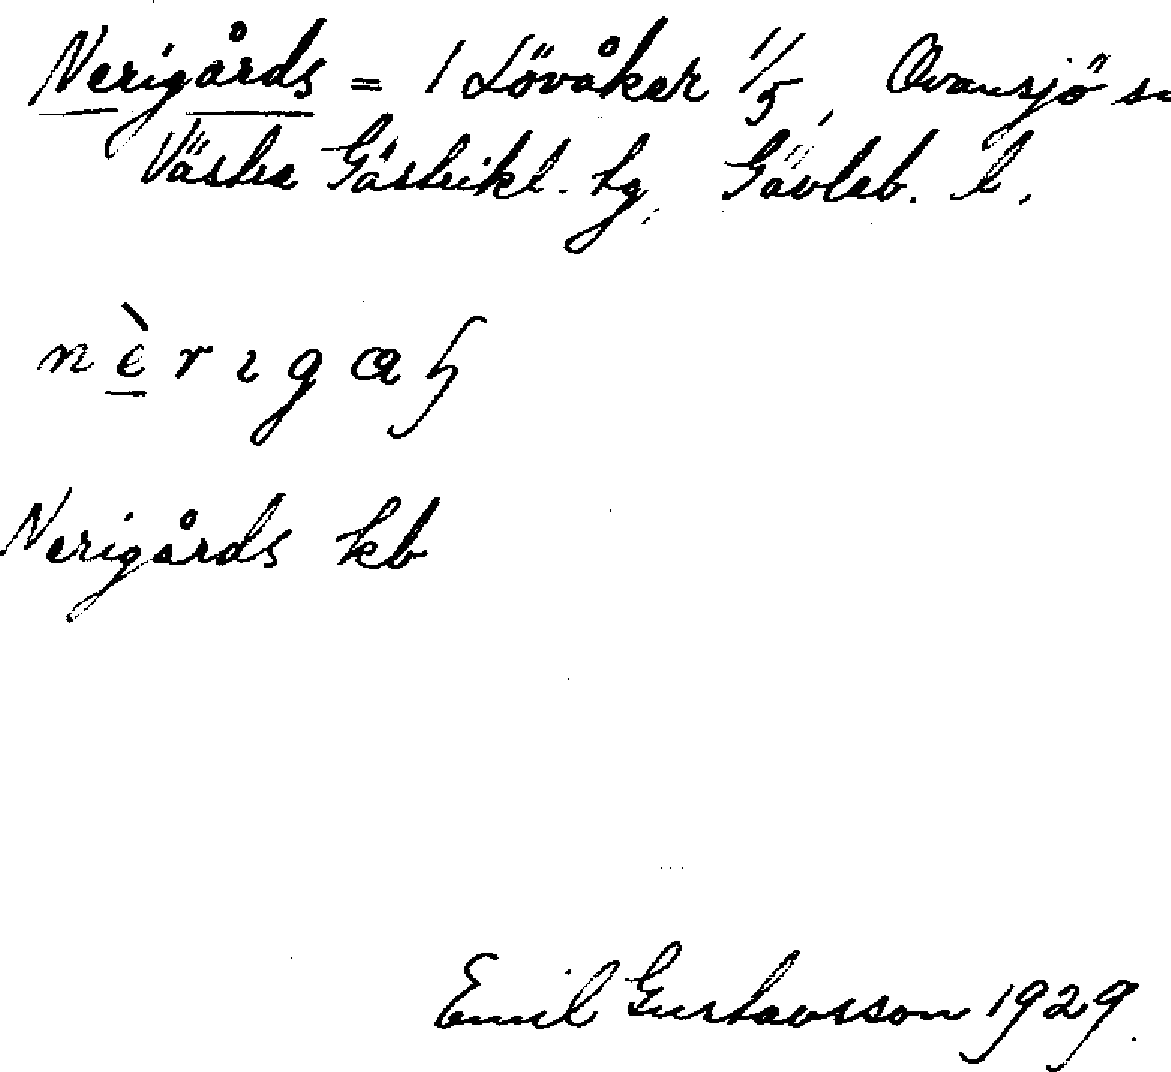 Nerigårds = 1 Lövåker 1/5, Ovansjö sn
Västra Gästrikl. tg, Gävleb. l.
nèrıgaꞕ
Nerigårds kb
Emil Gustavsson 1929.